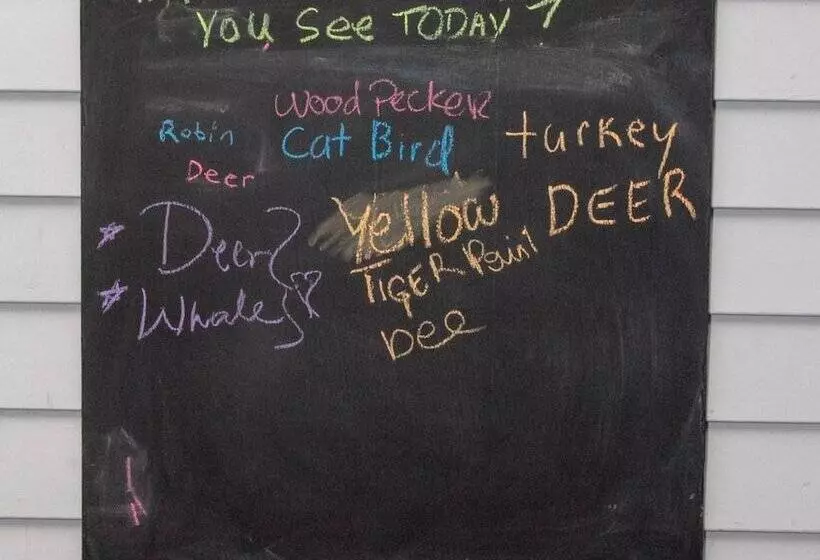 You See TODAY ?
Wood Pecker
Robin Cat Bird turkey
Deer
Deer Yellow DEER
TIGER
Whale
Dee